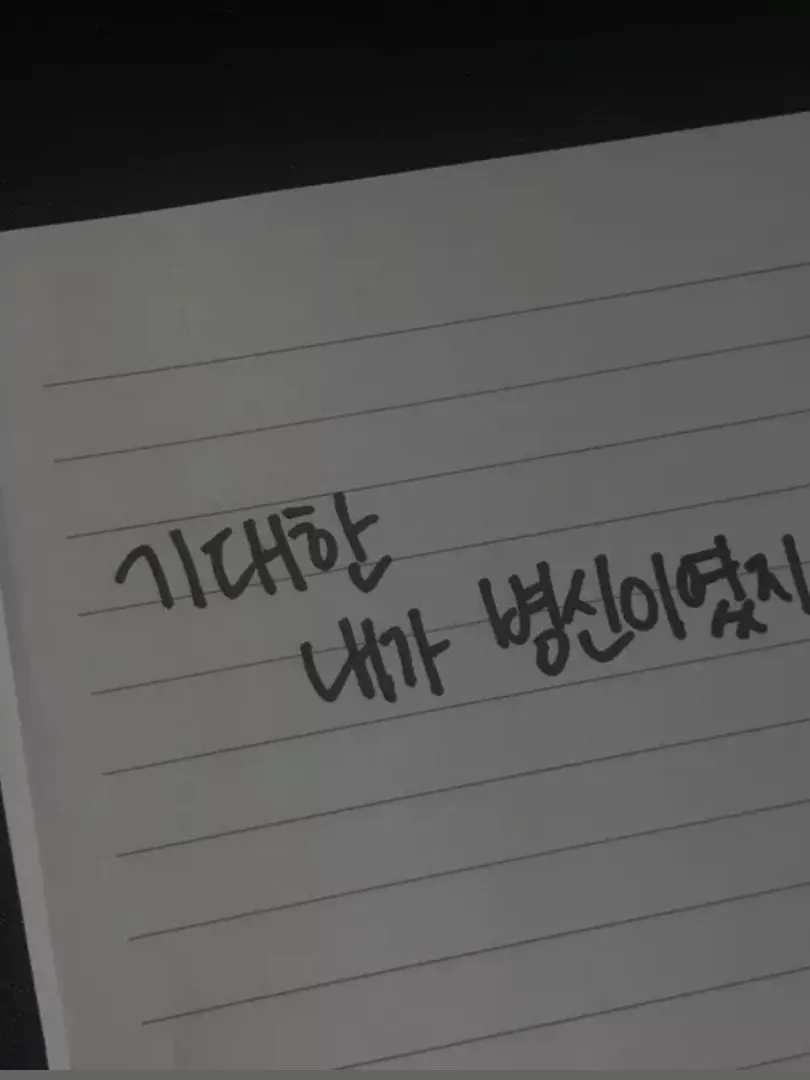 기대한
내가 병신이였지